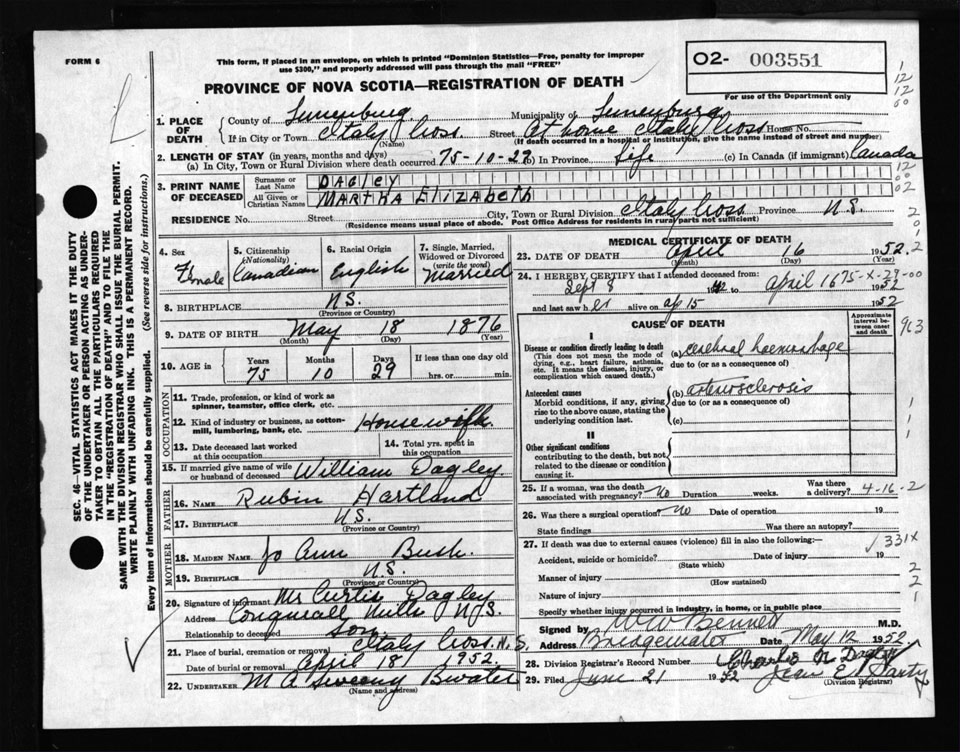 FORM 6
This form, if placed in an envelope, on which is printed "Dominion Statistics—Free, penalty for improper
use $300," and properly addressed will pass through the mail "FREE"
02- 003551
For use of the Department only
PROVINCE OF NOVA SCOTIA—REGISTRATION OF DEATH
1. PLACE OF DEATH County of Lunenburg Municipality of Lunenburg
If in City or Town Italy Cross Street At home Italy Cross House No.
(Name) (If death occurred in a hospital or institution, give the name instead of street and number)
2. LENGTH OF STAY (in years, months and days)
(a) In City, Town or Rural Division where death occurred 75-10-29 (b) In Province Life (c) In Canada (if immigrant) Canada
3. PRINT NAME OF DECEASED Surname or Last Name DAGLEY
All Given or Christian Names MARTHA ELIZABETH
RESIDENCE No. Street City, Town or Rural Division Italy Cross Province N.S.
(Residence means usual place of abode. Post Office Address for residents in rural parts not sufficient)
4. Sex Female
5. Citizenship (Nationality) Canadian
6. Racial Origin English
7. Single, Married, Widowed or Divorced (write the word) Married
8. BIRTHPLACE N.S.
(Province or Country)
9. DATE OF BIRTH May 18 1876
(Month) (Day) (Year)
10. AGE in Years 75 Months 10 Days 29 If less than one day old hrs. or min.
OCCUPATION
11. Trade, profession, or kind of work as spinner, teamster, office clerk, etc.
12. Kind of industry or business, as cotton-mill, lumbering, bank, etc. Housewife
13. Date deceased last worked at this occupation
14. Total yrs. spent in this occupation
15. If married give name of wife or husband of deceased William Dagley
FATHER
16. NAME Rubin Hartland
17. BIRTHPLACE N.S.
(Province or Country)
MOTHER
18. MAIDEN NAME Jo Ann Bush
19. BIRTHPLACE N.S.
(Province or Country)
20. Signature of informant Mr Curtis Dagley
Address Conquerall Mills N.S.
Relationship to deceased son
21. Place of burial, cremation or removal Italy Cross N.S.
Date of burial or removal April 18 1952
22. UNDERTAKER M A Sweeny Bwater
(Name and address)
MEDICAL CERTIFICATE OF DEATH
23. DATE OF DEATH April 16 1952
(Month) (Day) (Year)
24. I HEREBY CERTIFY that I attended deceased from:
Sept 8 to April 16 1952
75-X-29-00
and last saw her alive on Ap 15 1952
CAUSE OF DEATH
Approximate interval between onset and death
I
Disease or condition directly leading to death (a) cerebral haemorrhage
(This does not mean the mode of dying, e.g., heart failure, asthenia, etc. It means the disease, injury, or complication which caused death.)
due to (or as a consequence of)
Antecedent causes (b) arteriosclerosis
Morbid conditions, if any, giving rise to the above cause, stating the underlying condition last.
due to (or as a consequence of)
(c)
II
Other significant conditions contributing to the death, but not related to the disease or condition causing it.
25. If a woman, was the death associated with pregnancy? No Duration weeks. Was there a delivery? 4-16-2
26. Was there a surgical operation? No Date of operation 19
State findings Was there an autopsy?
27. If death was due to external causes (violence) fill in also the following:— 331X
Accident, suicide or homicide? Date of injury 19
(State which)
Manner of injury
(How sustained)
Nature of injury
Specify whether injury occurred in industry, in home, or in public place
Signed by W W Bennett M.D.
Address Bridgewater Date May 12 1952
28. Division Registrar's Record Number
29. Filed June 21 1952
(Division Registrar)
SEC. 46—VITAL STATISTICS ACT MAKES IT THE DUTY
OF THE UNDERTAKER OR PERSON ACTING AS UNDER-
TAKER TO OBTAIN ALL THE PARTICULARS REQUIRED
IN THE "REGISTRATION OF DEATH" AND TO FILE THE
SAME WITH THE DIVISION REGISTRAR WHO SHALL ISSUE THE BURIAL PERMIT.
WRITE PLAINLY WITH UNFADING INK. THIS IS A PERMANENT RECORD.
Every item of Information should be carefully supplied. (See reverse side for instructions.)